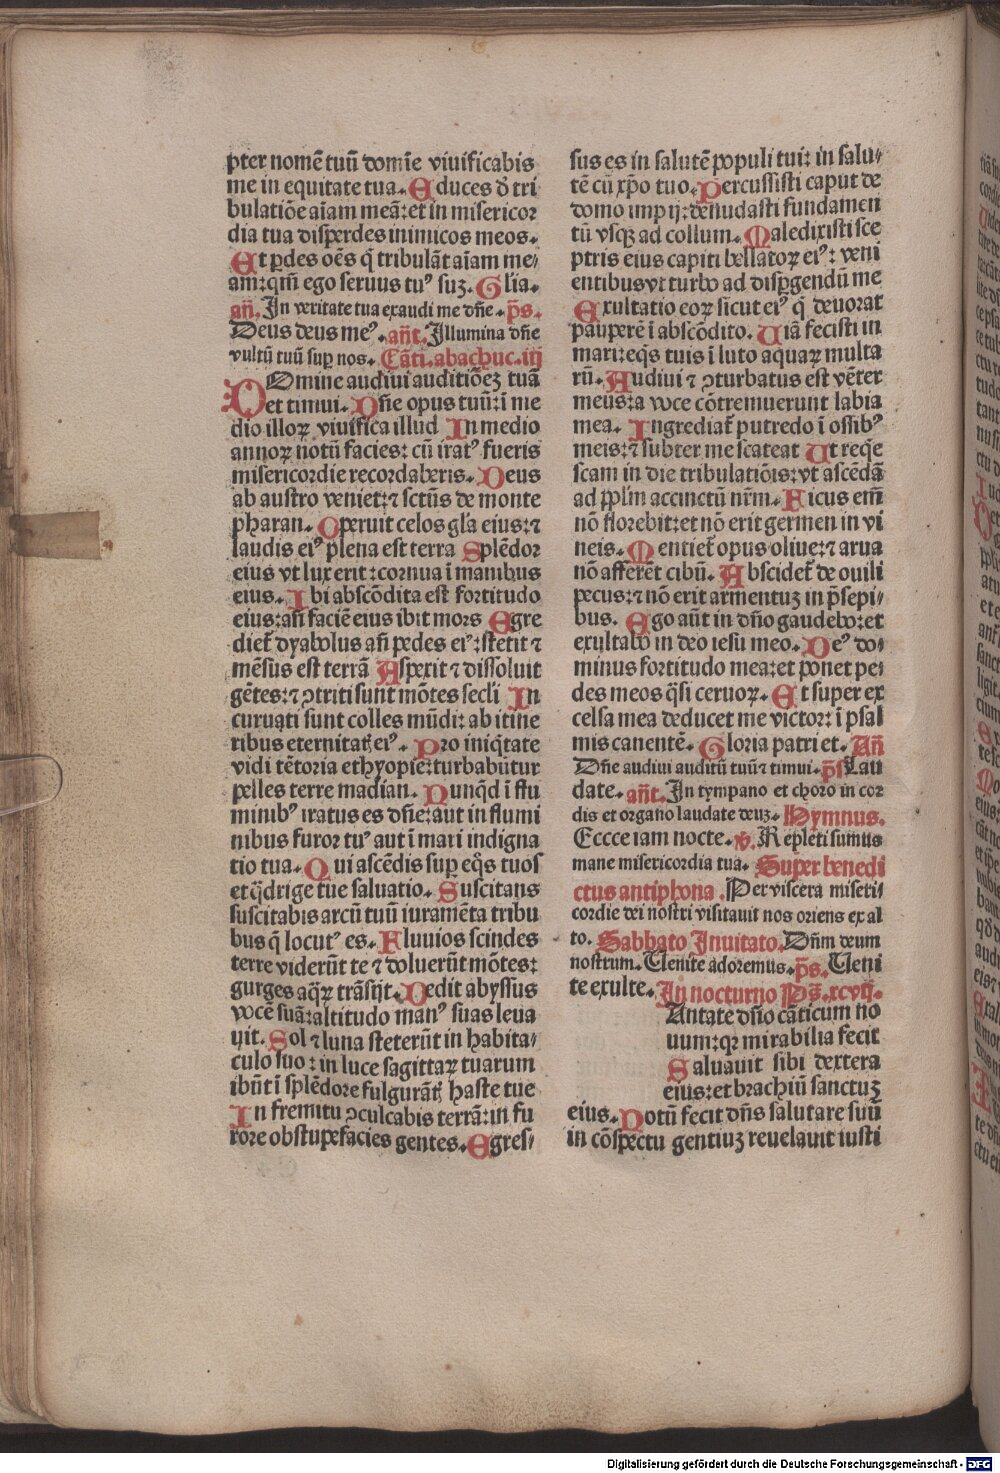 pter nomē tuū domīe viuificabis
me in equitate tua. Educes ð tri
bulatiōe aīam meā: et in misericor
dia tua disperdes inimicos meos.
Et ꝑdes oēs q̄ tribulāt aīam me⸗
am: qm̄ ego seruus tuꝰ suꝫ. Glīa.
añ. In veritate tua exaudi me dñe. p̄s.
Deus deus meꝰ. añt. Illumina dñe
vultū tuū suꝑ nos. Cāti. abachuc. iij
DOmine audiui auditiōeꝫ tuā
et timui. Dñe opus tuū: ī me
dio illoꝝ viuifica illud In medio
annoꝝ notū facies: cū iratꝰ fueris
misericordie recordaberis. Deus
ab austro veniet: ⁊ sctūs de monte
pharan. Operuit celos glīa eius: ⁊
laudis eiꝰ plena est terra Splēdor
eius vt lux erit: cornua ī manibus
eius. Ibi abscōdita est fortitudo
eius: añ faciē eius ibit mors Egre
diet̄ dyabolus añ pedes eiꝰ: stetit ⁊
mēsus est terrā Aspexit ⁊ dissoluit
gētes: ⁊ ꝯtriti sunt mōtes secli In
curuati sunt colles mūdi: ab itine
ribus eternitat̄ eiꝰ. Pro iniq̄tate
vidi tētoria ethyopie: turbabūtur
pelles terre madian. Nunqd̄ ī flu
minibꝰ iratus es dñe: aut in flumi
nibus furor tuꝰ aut ī mari indigna
tio tua. Qui ascēdis suꝑ eq̄s tuos
et q̄drige tue saluatio. Suscitans
suscitabis arcū tuū iuramēta tribu
bus q̄ locutꝰ es. Fluuios scindes
terre viderūt te ⁊ doluerūt mōtes:
gurges aq̄ꝝ trāsijt. Dedit abyssus
vocē suā: altitudo manꝰ suas leua
uit. Sol ⁊ luna steterūt in habita⸗
culo suo: in luce sagittaꝝ tuarum
ibūt ī splēdore fulgurāt̄ haste tue
In fremitu ꝯculcabis terrā: in fu
rore obstupefacies gentes. Egres⸗
sus es in salutē populi tui: in salu⸗
tē cū xp̄o tuo. Percussisti caput de
domo impij: denudasti fundamen
tū vsqꝫ ad collum. Maledixisti sce
ptris eius capiti bellatoꝝ eiꝰ: veni
entibus vt turbo ad disꝑgendū me
Exultatio eoꝝ sicut eiꝰ q̄ deuorat
pauperē ī abscōdito. Uiā fecisti in
mari: eq̄s tuis ī luto aquaꝝ multa
rū. Audiui ⁊ ꝯturbatus est vēter
meus: a voce cōtremuerunt labia
mea. Ingrediat̄ putredo ī ossibꝰ
meis: ⁊ subter me scateat Ut req̄e
scam in die tribulatiōis: vt ascēdā
ad pplm̄ accinctū nr̄m. Ficus em̄
nō florebit: et nō erit germen in vi
neis. Mentiet̄ opus oliue: ⁊ arua
nō afferēt cibū. Abscidet̄ de ouili
pecus: ⁊ nō erit armentuꝫ in p̄sepi⸗
bus. Ego aūt in dño gaudebo: et
exultabo in deo iesu meo. Deꝰ do⸗
minus fortitudo mea: et ponet pe⸗
des meos q̄si ceruoꝝ. Et super ex
celsa mea deducet me victor: ī psal
mis canentē. Gloria patri et. Añ
Dñe audiui auditū tuū ⁊ timui. p̄s Lau
date. añt. In tympano et choro in cor
dis et organo laudate deuꝫ. Hymnus.
Eccce iam nocte. ꝟ. Repleti sumus
mane misericordia tua. Super benedi
ctus antiphona. Per viscera miseri⸗
cordie dei nostri visitauit nos oriens ex al
to. Sabbato Inuitato. Dñm deum
nostrum. Uenite adoremus. p̄s. Ueni
te exulte. In nocturno Ps̄. xcvij.
Antate dño cāticum no
uum: qꝛ mirabilia fecit
Saluauit sibi dextera
eius: et brachiū sanctuꝫ
eius. Notū fecit dñs salutare suū
in cōspectu gentiuꝫ reuelauit iusti
Digitalisierung gefördert durch die Deutsche Forschungsgemeinschaft - DFG